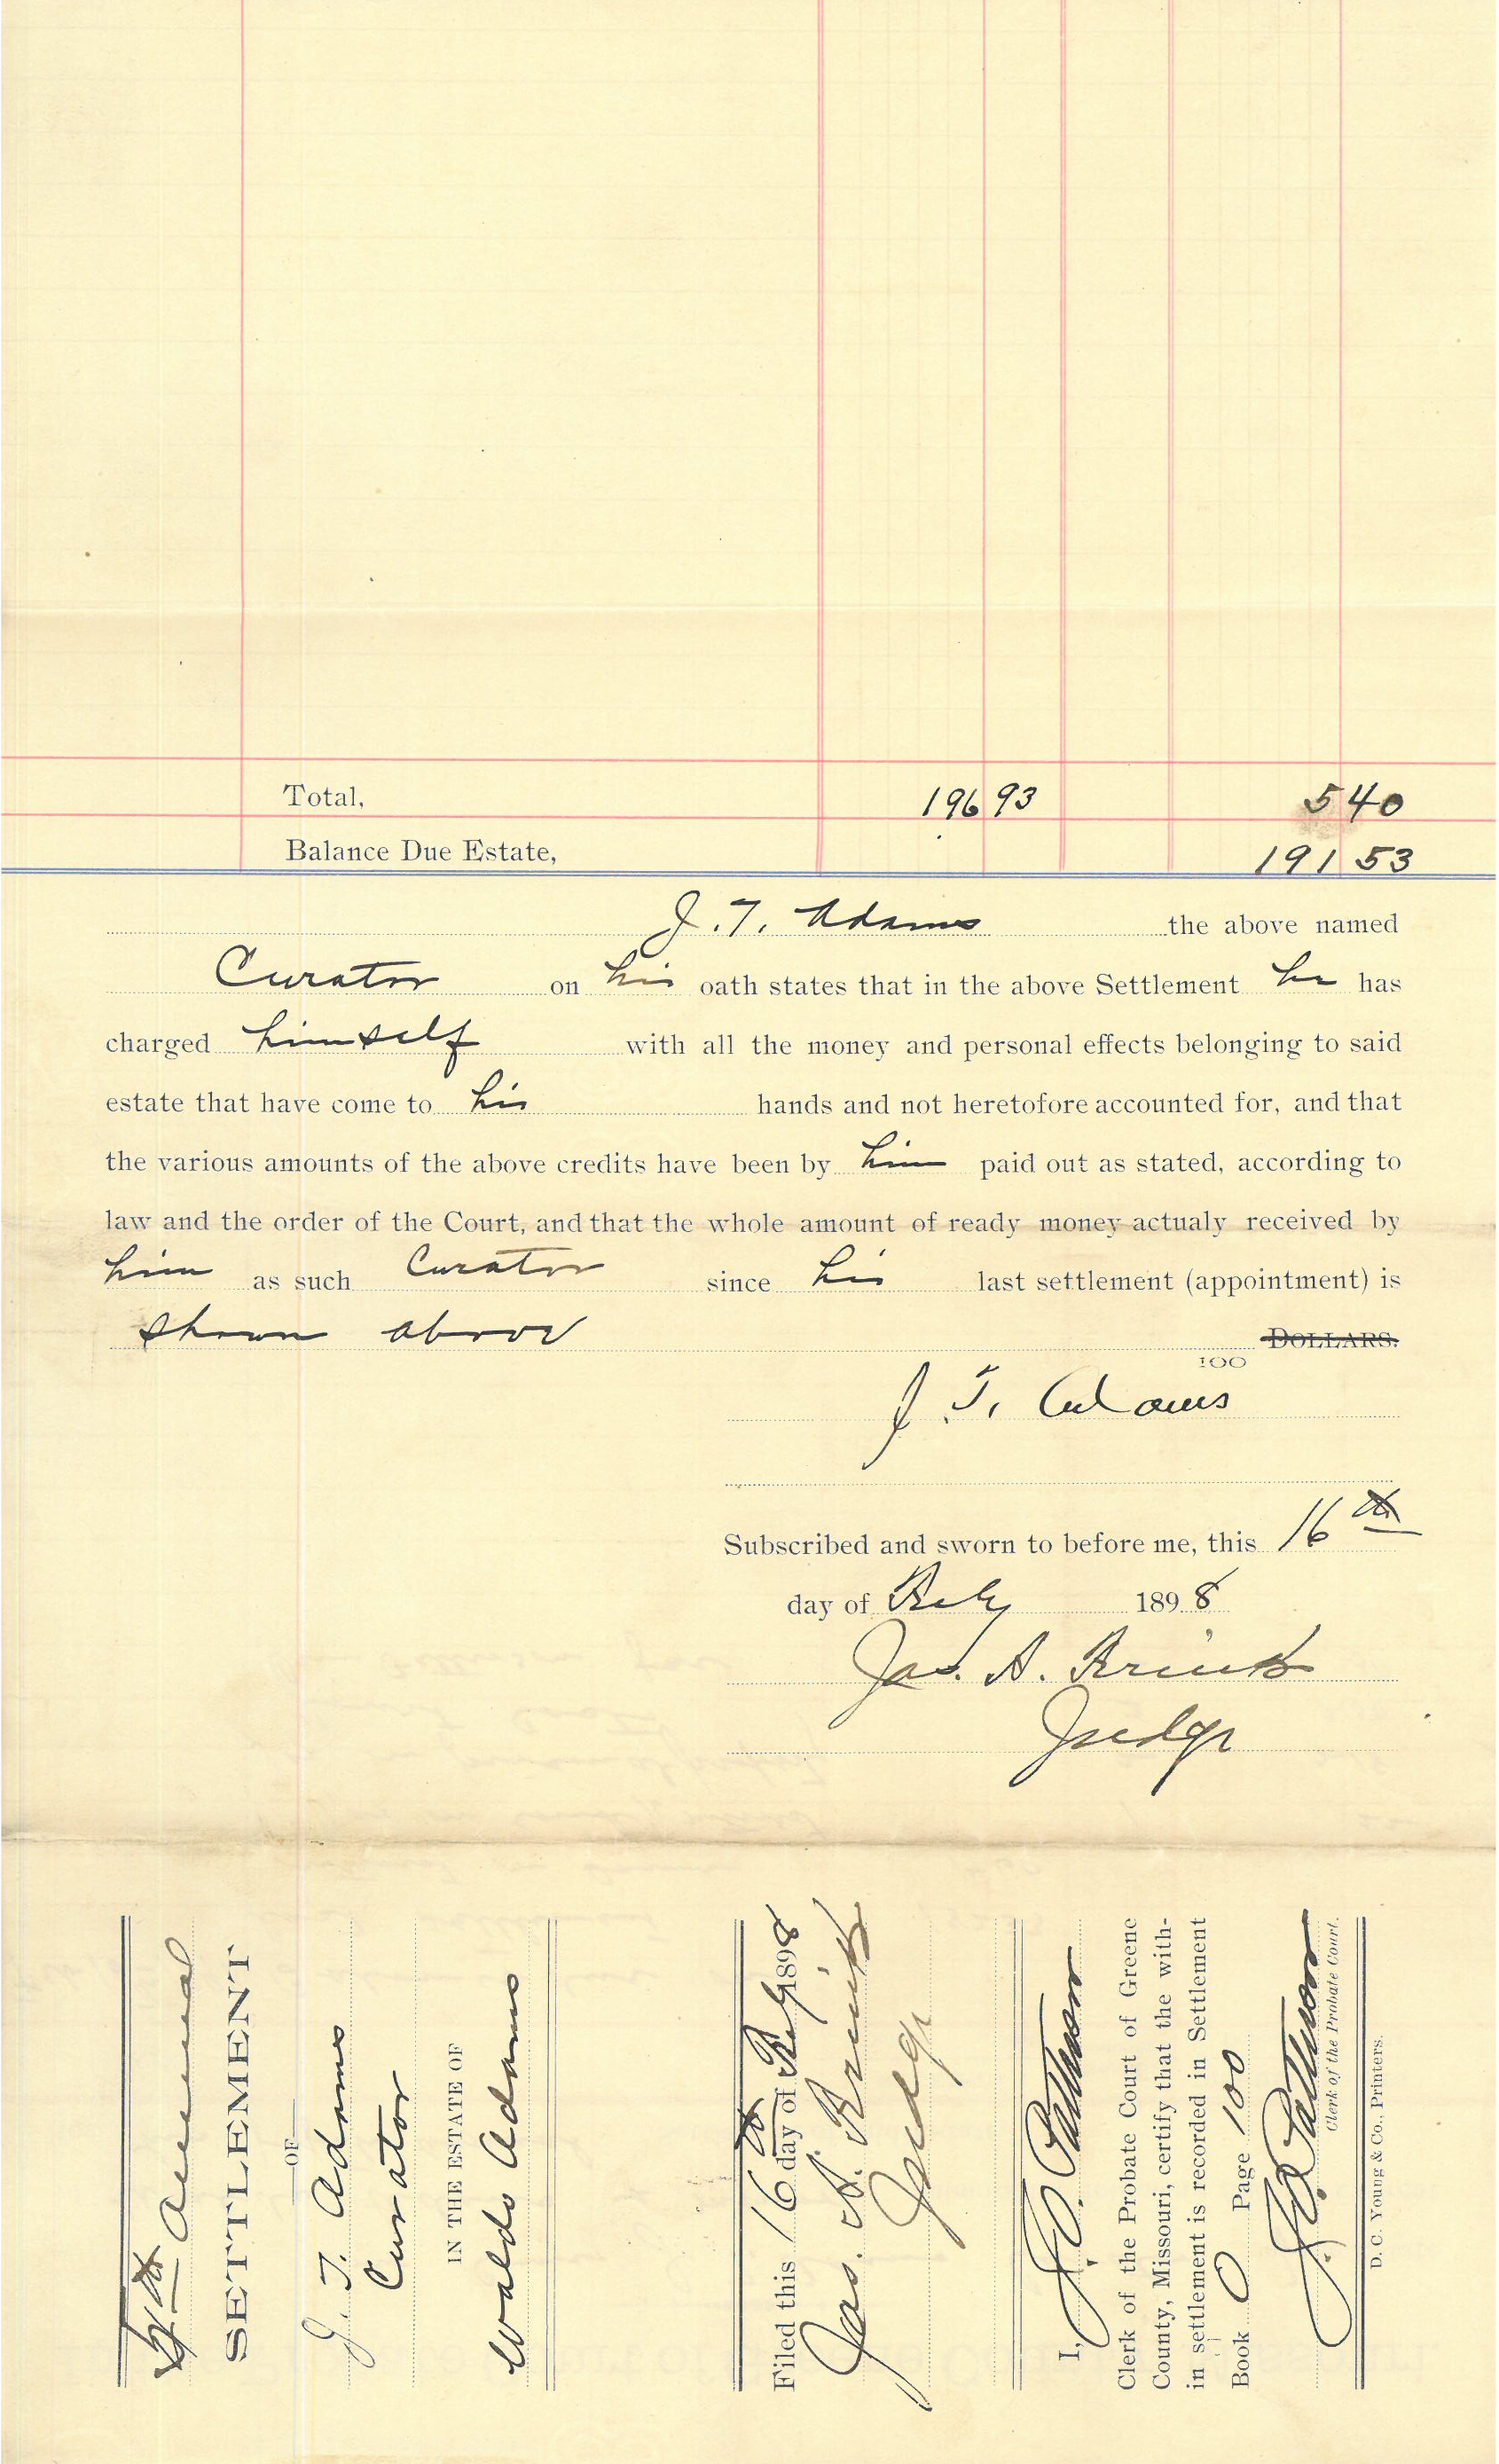 Total, 196 93 5 40
Balance Due Estate, 191 53
J. T. Adams the above named
Curator on his oath states that in the above Settlement he has
charged himself with all the money and personal effects belonging to said
estate that have come to his hands and not heretofore accounted for, and that
the various amounts of the above credits have been by him paid out as stated, according to
law and the order of the Court, and that the whole amount of ready money actualy received by
him as such Curator since his last settlement (appointment) is
shown above DOLLARS.
100
J. T. Adams
Subscribed and sworn to before me, this 16th
day of Feby 1898
Jas. A. Brink
Judge
Annual
SETTLEMENT
OF
J. T. Adams
Curator
IN THE ESTATE OF
Waldo Adams
Filed this 16th day of Feby 1898
Jas. A. Brink
Judge
I,
Clerk of the Probate Court of Greene
County, Missouri, certify that the with-
in settlement is recorded in Settlement
Book O Page 100
Clerk of the Probate Court.
D. C. Young & Co., Printers.